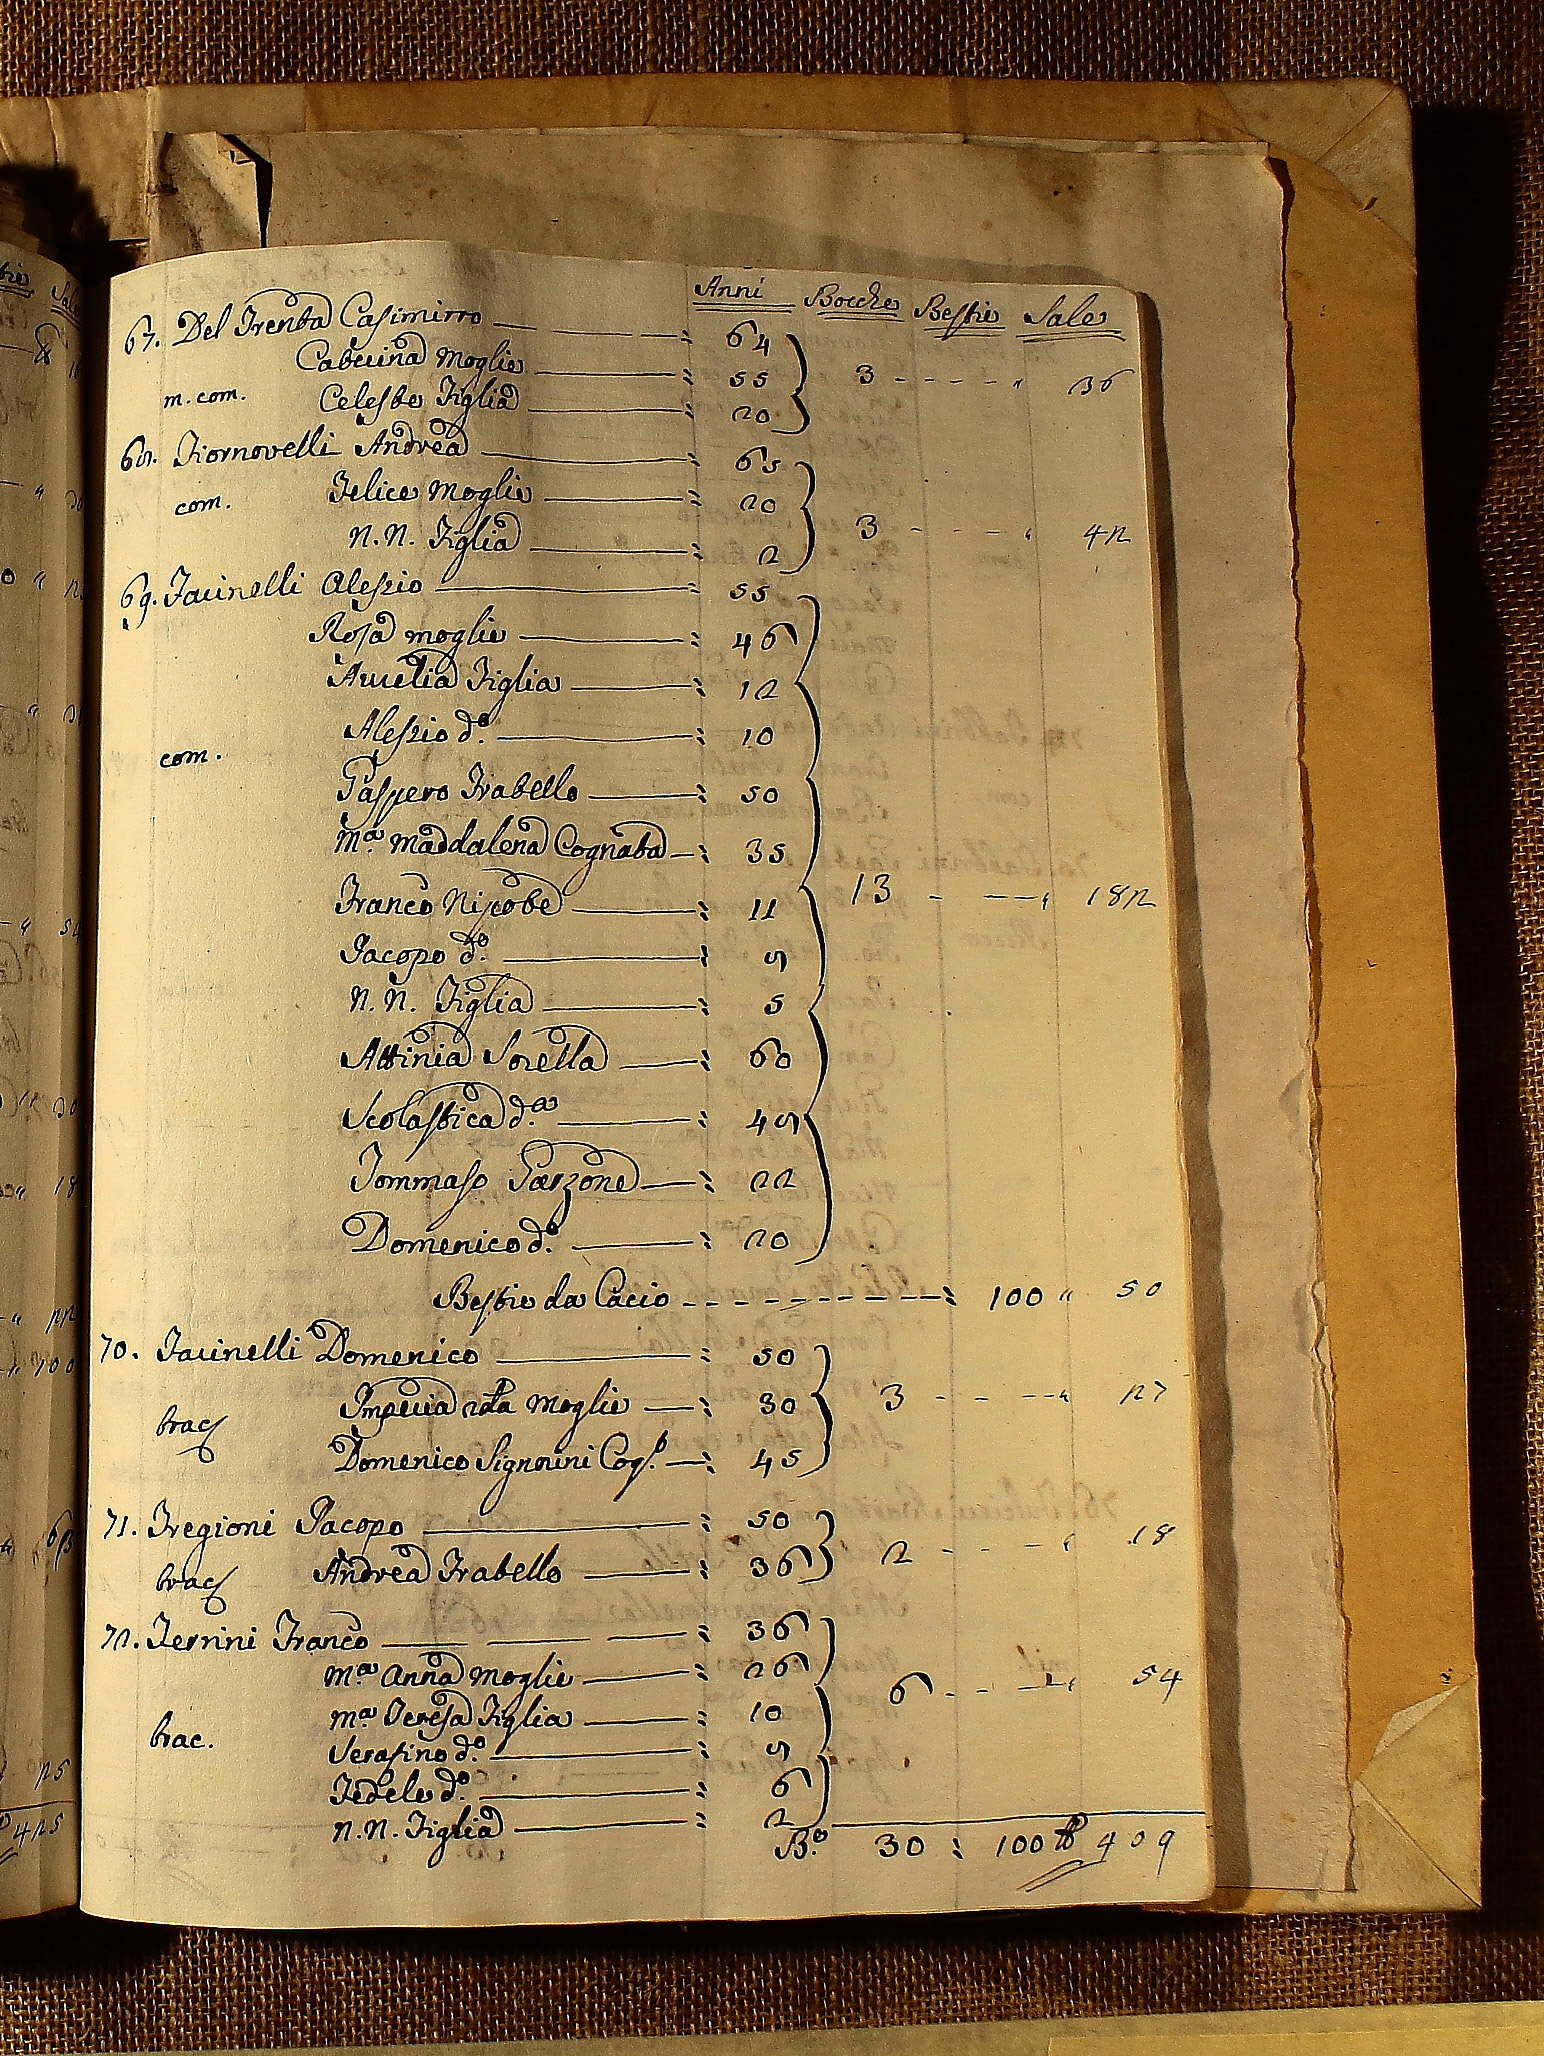 Anni Bocche Bestie Sale
67. Del Trenta Casimirro 64
Caterina Moglie 55 3 36
m. com. Celeste Figlia 20
68. Fiornovelli Andrea 65
com. Felice Moglie 20
N.N. Figlia 2 3 42
69. Facinelli Alessio 55
Rosa moglie 46
Aurelia Figlia 12
Alessio do. 10
com.
Gaspero Fratello 50
Ma. Maddalena Cognata 35
Franco Nipote 11 13 182
Jacopo do. 9
N.N. Figlia 5
Attinia Sorella 60
Scolastica da. 49
Tommaso Garzone 22
Domenico do. 20
Bestie da Cacio 100 50
70. Facinelli Domenico 50
Moglie 30 3 27
brac
Domenico Signorini 45
71. Fregioni Jacopo 50
brac Andrea Fratello 36 2 18
72. Ferrini Franco 36
Ma. Anna Moglie 26 6 54
Ma. Teresa Figlia 10
brac. Serafino do. 9
Fedele do. 6
N.N. Figlia 2
30 : 100 409